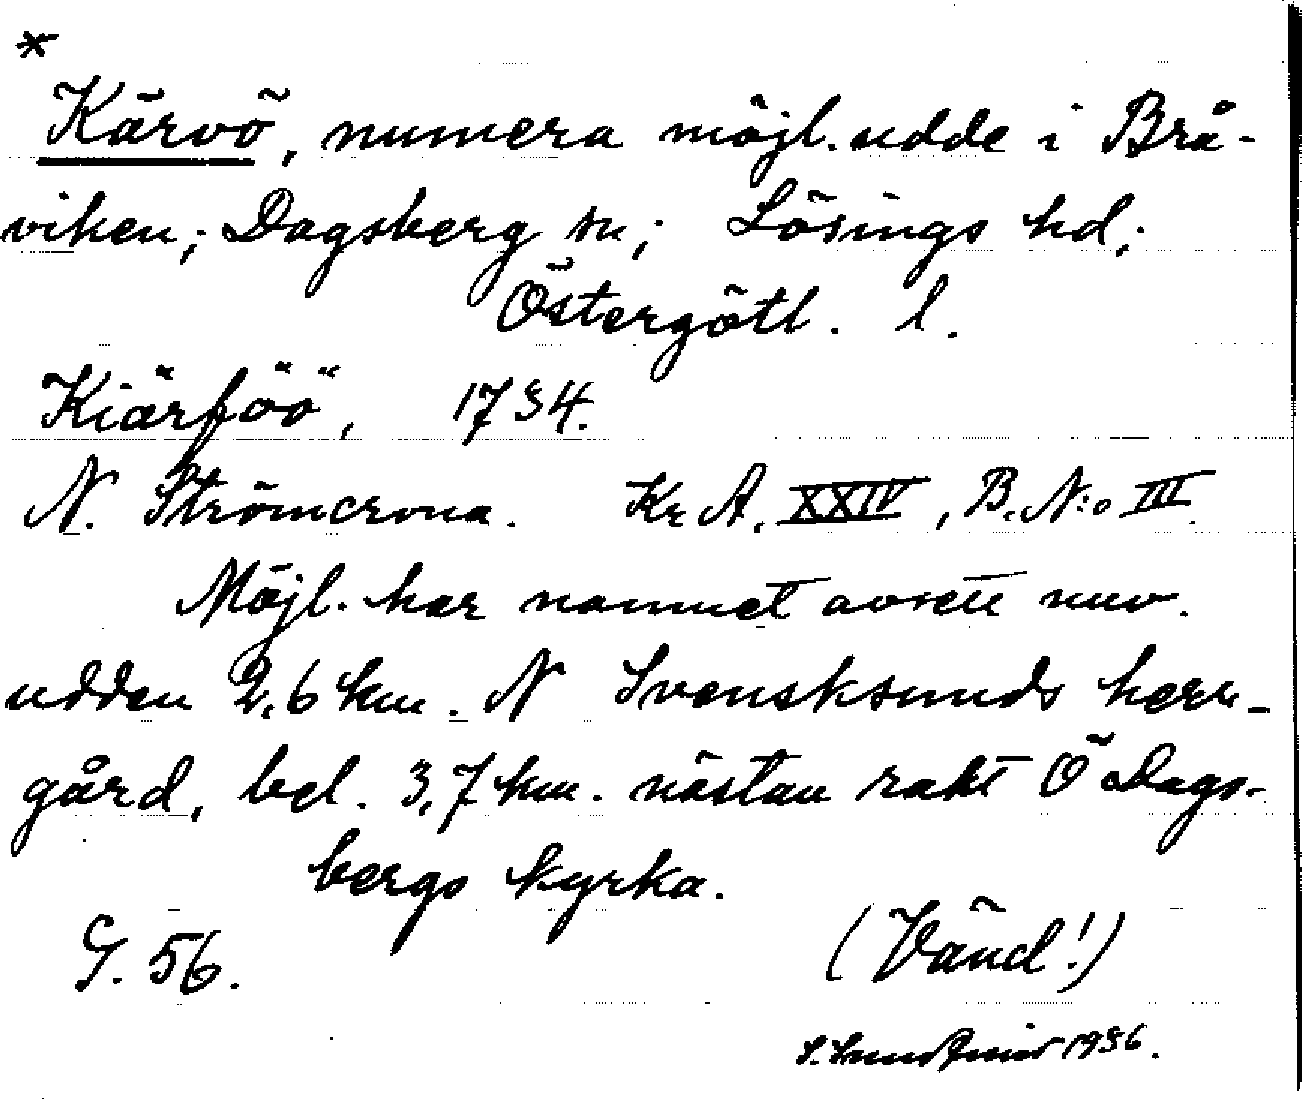 *
Kärvö, numera möjl. udde i Brå-
viken; Dagsberg sn; Lösings hd;
Östergötl. l.
Kiärföö, 1734.
N. Strömcrona. Kr A. XXIV, B. N:o III.
Möjl. har namnet avsett nuv.
udden 2,6 km. N Svensksunds herr-
gård, bel. 3,7 km. nästan rakt Ö Dags-
bergs kyrka.
G. 56. (Vänd!)
1936.